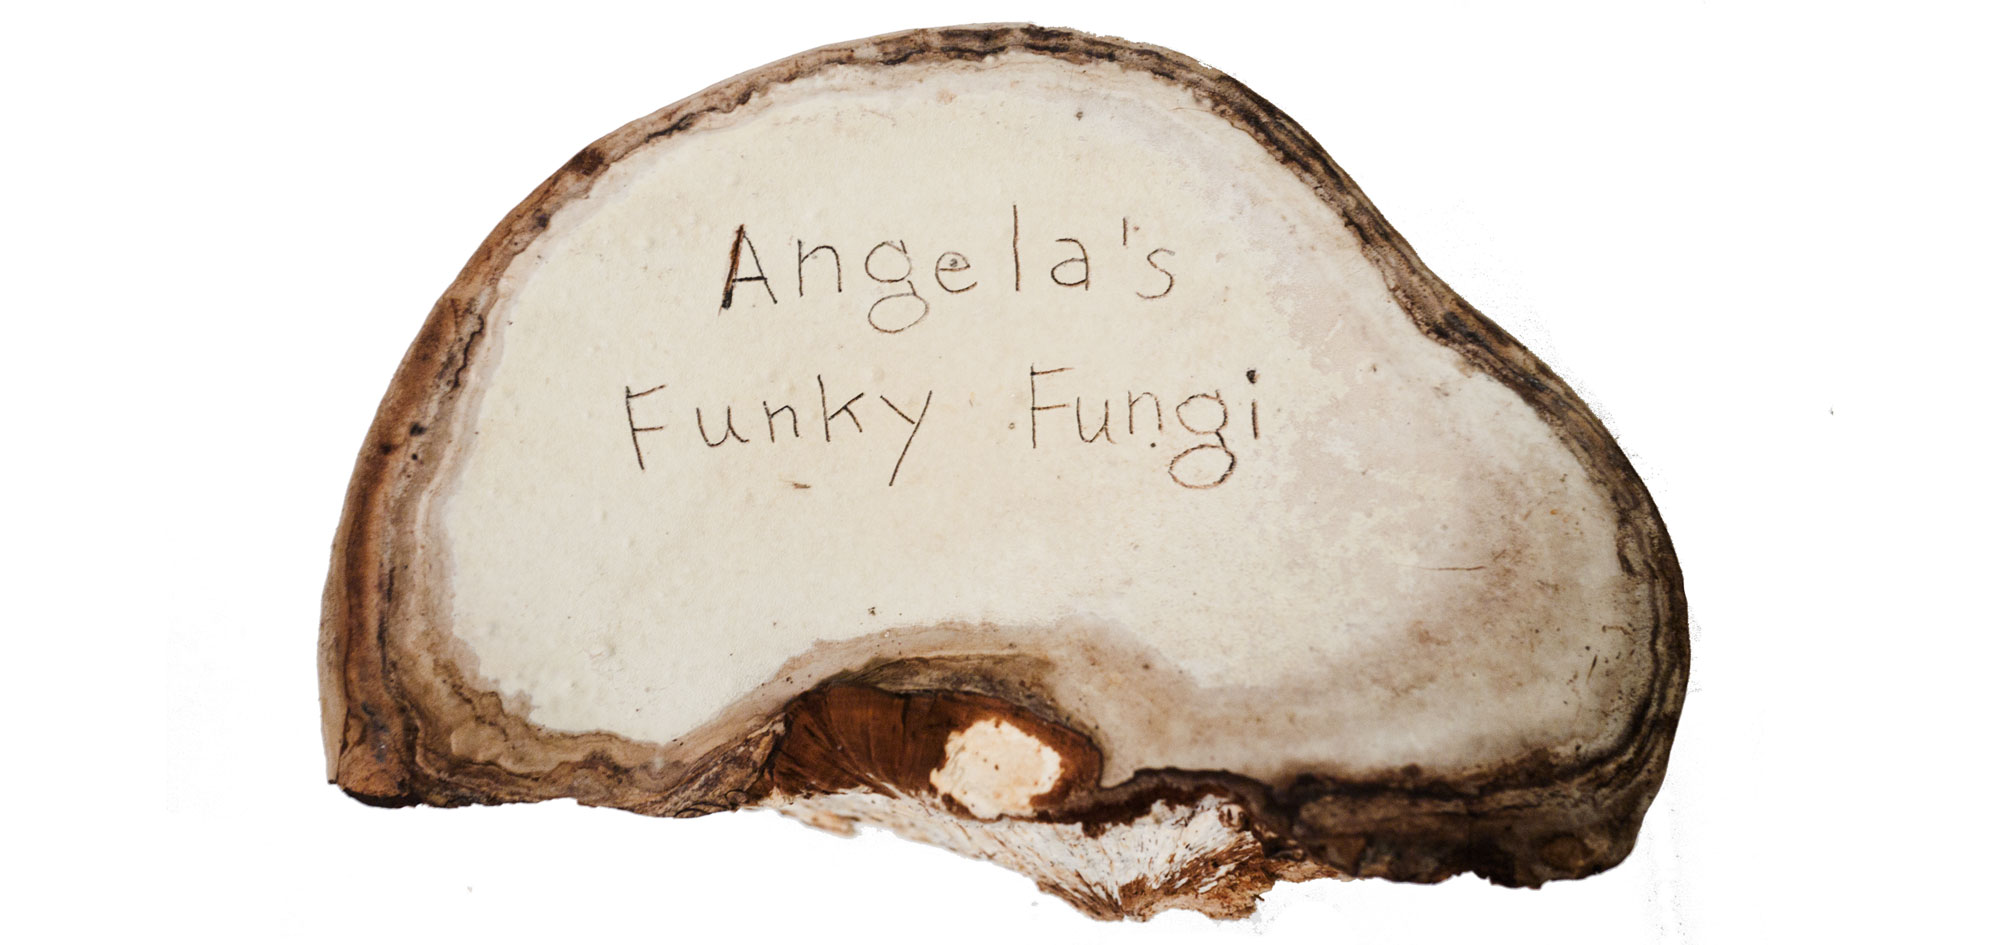 Angela's
Funky Fungi